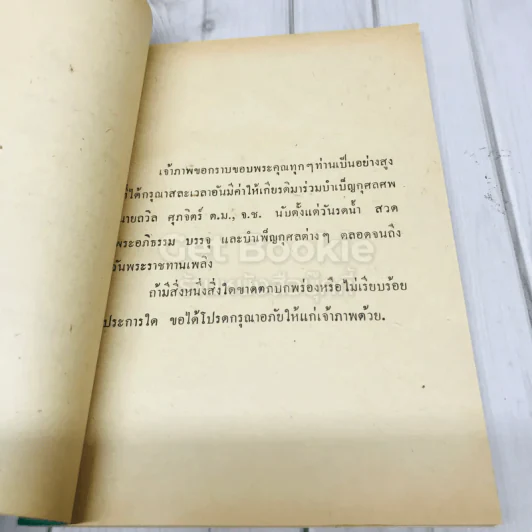 เจ้าภาพขอกราบขอบพระคุณทุกๆท่านเป็นอย่างสูง
ที่ได้กรุณาสละเวลาอันมีค่าให้เกียรติมาร่วมบำเพ็ญกุศลศพ
นายถวิล ศุภจิตร์ ต.ม., จ.ช. นับตั้งแต่วันรดน้ำ สวด
พระอภิธรรม บรรจุ และบำเพ็ญกุศลต่างๆ ตลอดจนถึง
วันพระราชทานเพลิง
ถ้ามีสิ่งหนึ่งสิ่งใดขาดตกบกพร่องหรือไม่เรียบร้อย
ประการใด ขอได้โปรดกรุณาอภัยให้แก่เจ้าภาพด้วย.
Get Bookie